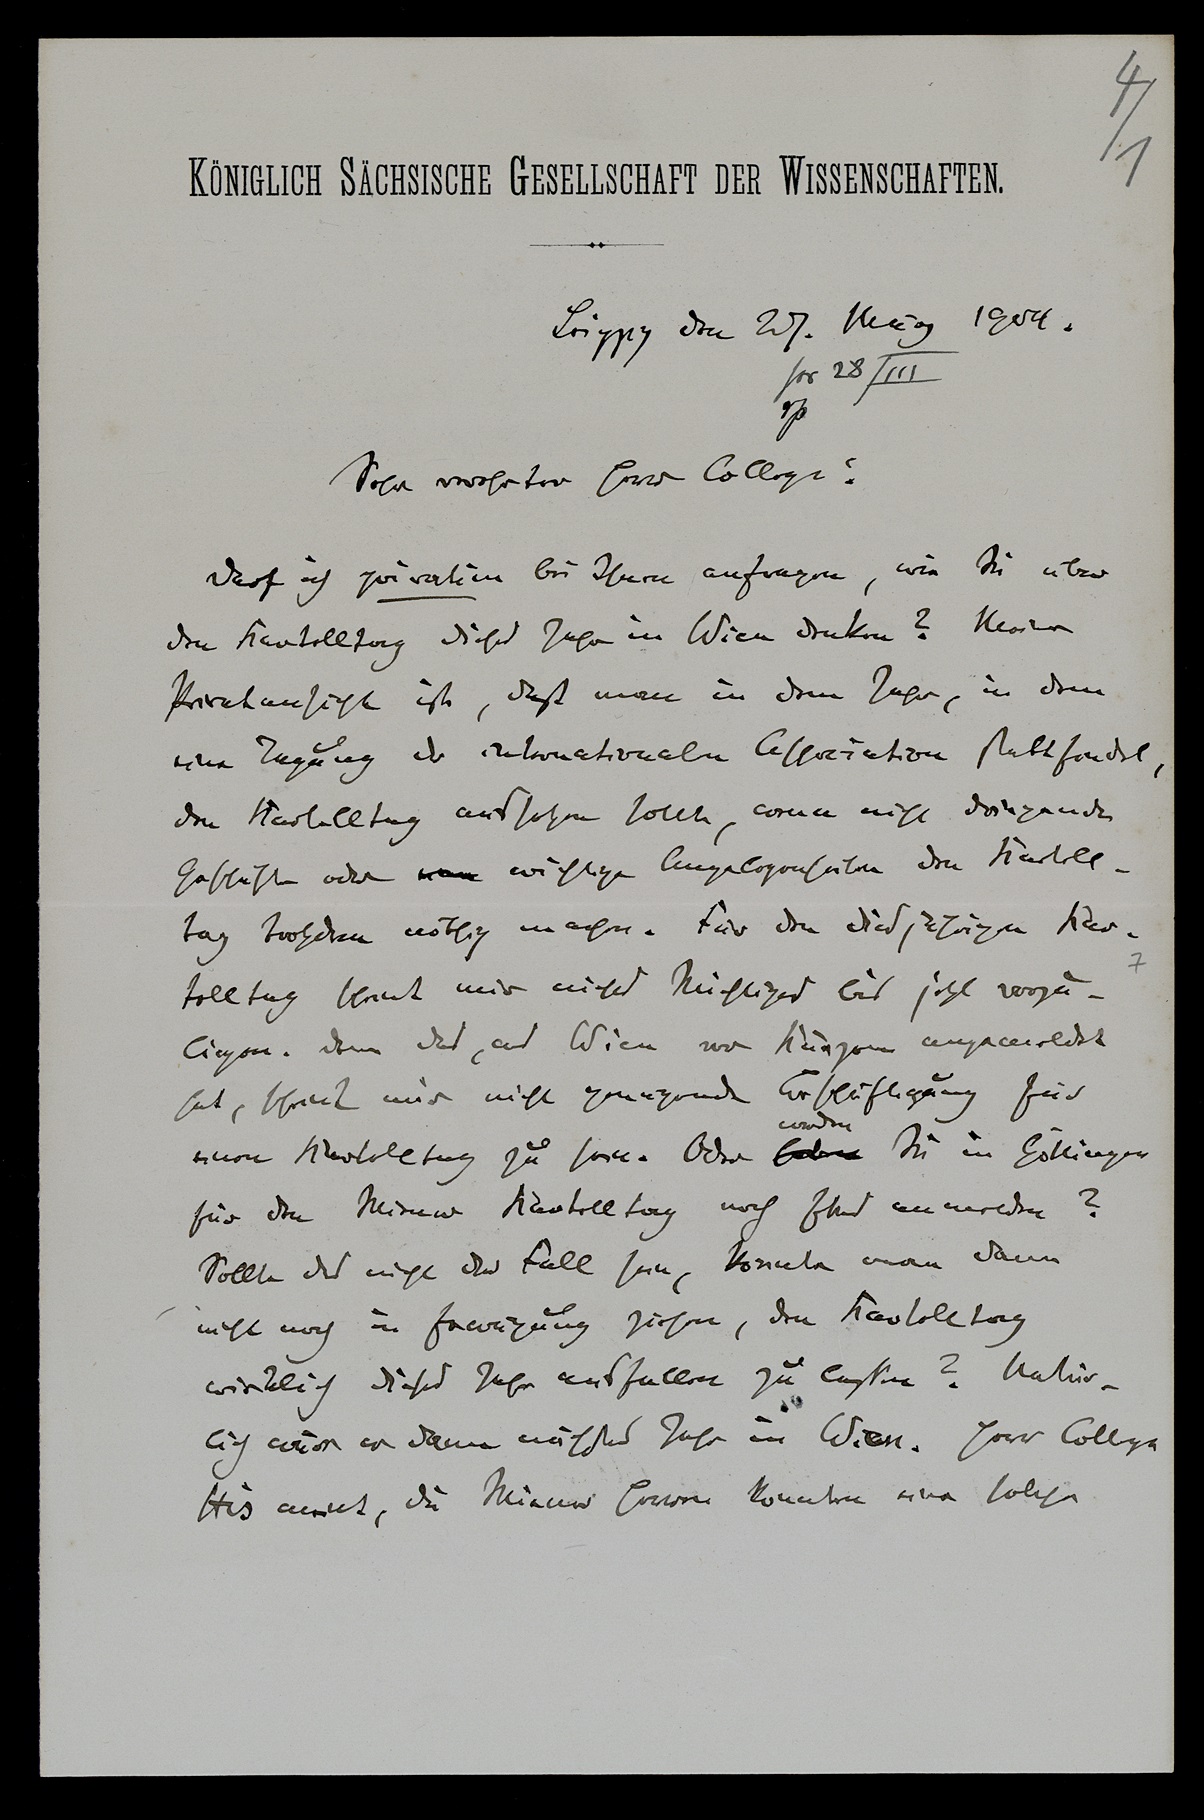 4/1
KÖNIGLICH SÄCHSISCHE GESELLSCHAFT DER WISSENSCHAFTEN.
Leipzig den 27. März 1904.
28/III
Sehr verehrter Herr College!
Darf ich privatim bei Ihnen anfragen, wie Sie über
den Kartelltag dieses Jahr in Wien denken? Meine
Privatansicht ist, daß man in dem Jahr, in dem
eine Tagung der internationalen Association stattfindet,
den Kartelltag aussetzen sollte, wenn nicht dringende
Geschäfte oder wichtige Angelegenheiten den Kartell-
tag trotzdem nöthig machen. Für den diesjährigen Kar-
telltag scheint mir nichts Wichtiges bis jetzt vorzu-
liegen. Denn das, was Wien vor Kurzem angemeldet
hat, scheint mir nicht genügende Beschäftigung für
einen Kartelltag zu sein. Oder werden Sie in Göttingen
für den Wiener Kartelltag noch etwas anmelden?
Sollte das nicht der Fall sein, könnte man dann
nicht noch in Erwägung ziehen, den Kartelltag
wirklich dieses Jahr ausfallen zu lassen? Natür-
lich wäre er dann nächstes Jahr in Wien. Herr College
His meint, die Wiener Herren könnten eine solche
7